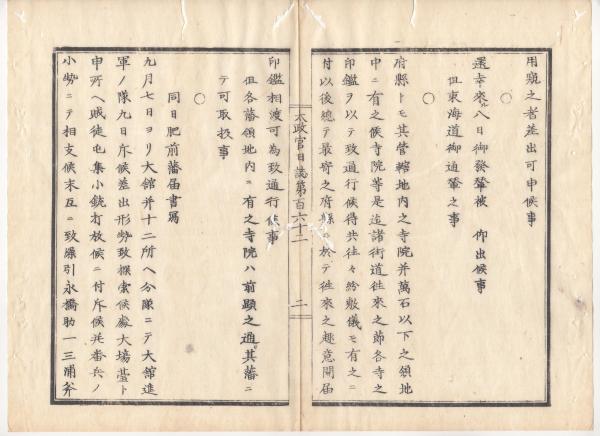 用䫉之者差出可申候事
○
還幸來ル八日御發輦被　仰出候事
但東海道御通輦之事
○
府縣トモ其管轄地内之寺院并萬石以下之領地
中ニ有之候寺院等是迄諸街道往來之節各寺之
印鑑ヲ以テ致通行候得共往々紛敷儀モ有之ニ
付以後總テ最寄之府縣ニ於テ往來之趣意聞届
太政官日誌第百六十二
二
印鑑相渡可為致通行候事
但各藩領地内ニ有之寺院ハ前顕之通其藩ニ
テ可取扱事
○
同日肥前藩届書寫
九月七日ヨリ大館并十二所ヘ分隊ニテ大館進
軍ノ隊九日斥候差出形勢致探索候處大塲臺ト
申所ヘ賊徒屯集小銃打放候ニ付斥候兵番兵ノ
小勢ニテ相支候末互ニ致繰引永橋助一三浦斧